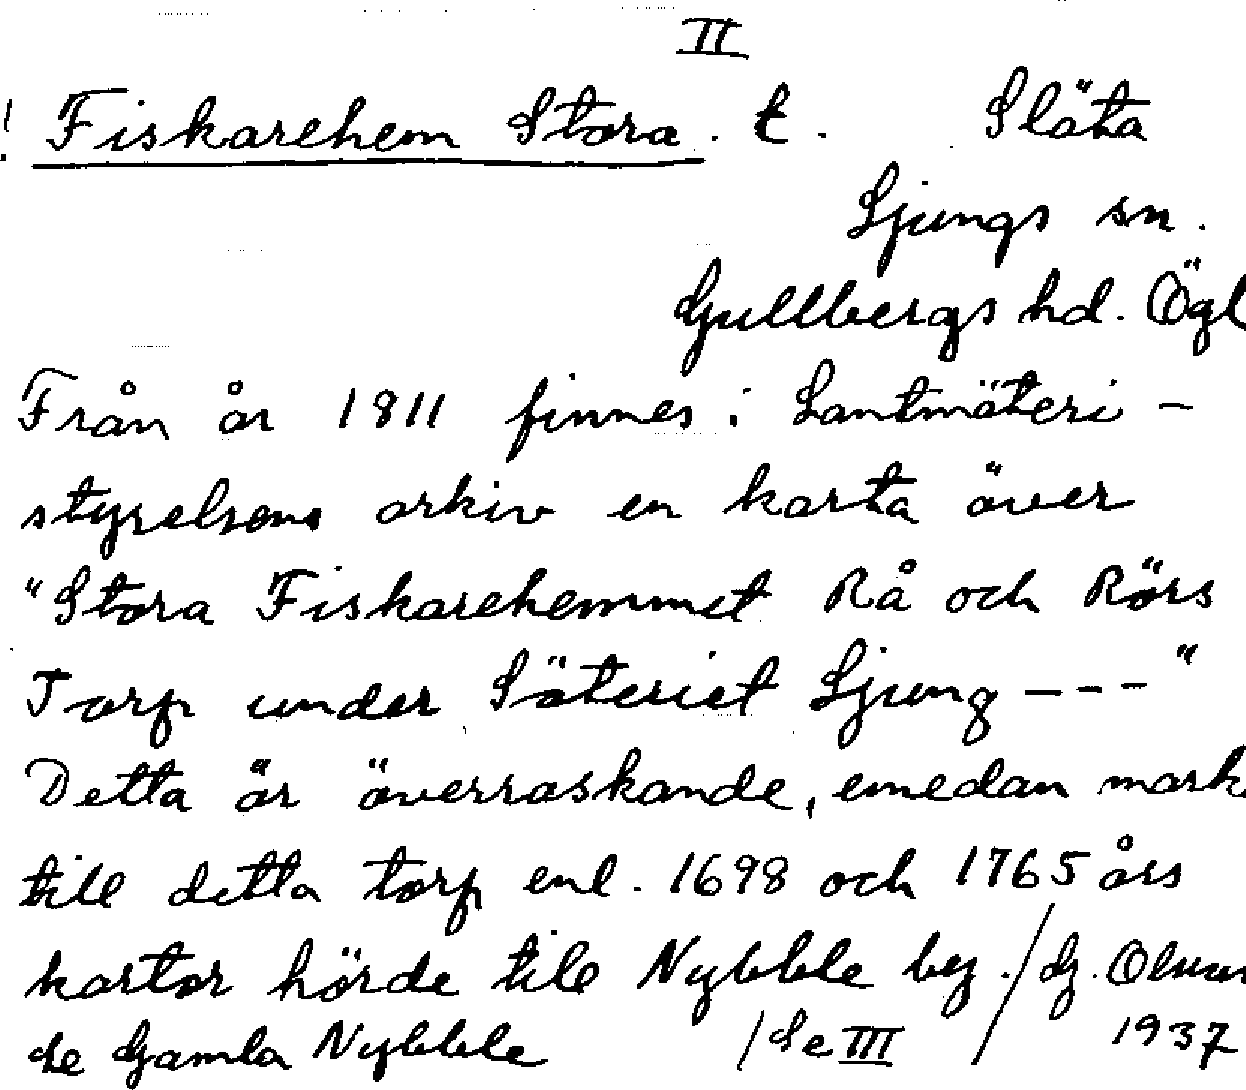 II
! Fiskarehem Stora. t. Släta
Ljungs sn.
Gullbergs hd. Ögl
Från år 1811 finnes i Lantmäteri-
styrelsens arkiv en karta över
"Stora Fiskarehemmet Rå och Rörs
Torp under Säteriet Ljung ---"
Detta är överraskande, emedan mark
till detta torp enl. 1698 och 1765 års
kartor hörde till Nybble by. / G.
se Gamla Nybble / Se III 1937